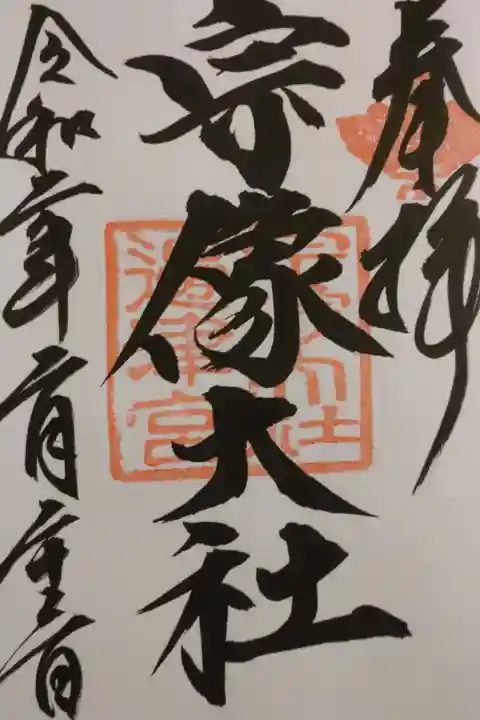 奉拝
宗像大社
宗像大社
邊津宮
令和 年 月 日